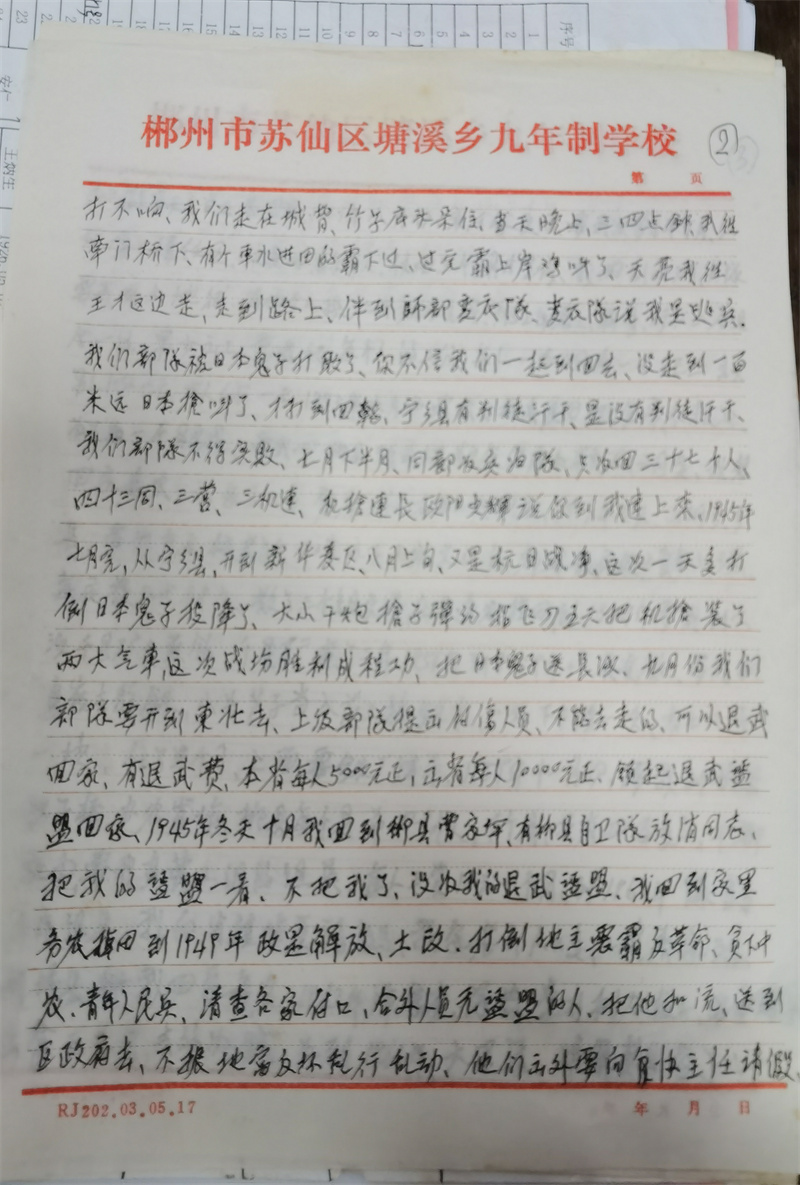 序号
1
2
3
4
5
6
7
8
9
10
11
12
13
14
15
23
安仁
郴州市苏仙区塘溪乡九年制学校
2
第 页
打不响、我们走在城背、竹子底头呆住、当天晚上、三四点钟、我往
南门桥下、有个車水进田的霸下过、过完霸上岸鸡叫了、天亮我往
王才这边走、走到路上、伴到師部便衣隊、便衣隊说我是逃兵.
我们部隊被日本鬼子打敗了、你不信我们一起到回去、没走到一百
米远日本槍叫了、才打到回轉、宁乡县有判徒汗干、显没有判徒汗干、
我们部隊不得失敗、七月下半月、回部收兵归隊、只收回三十七个人、
四十三团、三营、三机連、机槍連长欧阳光輝说你到我連上来、1945年
七月完,从宁乡县,开到新华县区、八月上旬、又是抗日战净、这次一天多打
倒日本鬼子投降了、大小干炮槍子彈 五六把机槍装了
两大气車,这次战场胜利成程功、把日本鬼子送長沙、九月份我们
部隊要开到東北去、上级部隊提出付傷人员、不能去走的、可以退武
回家、有退武费、本省每人5000元正,出省每人10000元正、领起退武証
盟回家、1945年冬天十月我回到郴县曹家坪、有郴县自卫隊放消同志、
把我的証盟一看、不把我了、没收我的退武証盟、我回到家里
务农掉田到1949年政是解放、土改.打倒地主恶霸反革命、贫下中
农、青年人民兵、清查各家付口、合外人员无証盟的人、把他扣流、送到
区政府去、不振地富反坏乱行乱动、他们出外要向贫协主任请假、
RJ202.03.05.17
年 月 日